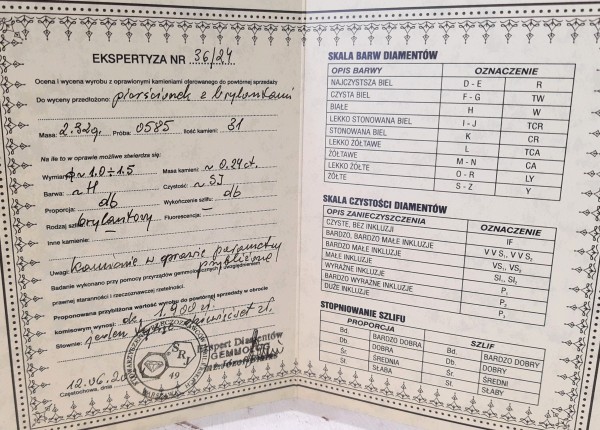 EKSPERTYZA NR 36/24
Ocena i wycena wyrobu z oprawionymi kamieniami oferowanego do powtórnej sprzedaży
Do wyceny przedłożono: pierścionek z brylantami
Masa: 2.92g. Próba: 0585 Ilość kamieni: 31
Na ile to w oprawie możliwe stwierdza się:
Wymiary: ϕ~1.0÷1.5 Masa kamieni: ~0.24ct.
Barwa: ~H Czystość: ~SI
Proporcja: db Wykończenie szlifu: db
Rodzaj szlifu: brylantowy Fluorescencja:
Inne kamienie:
Uwagi: Kamienie w oprawie parametry
przybliżone
Badanie wykonano przy pomocy przyrządów gemmologicznych z uwzględnieniem
prawnej staranności i rzeczoznawczej rzetelności.
Proponowana przybliżona wartość wyrobu do powtórnej sprzedaży w obrocie
komisowym wynosi: 1.900 zł.
Słownie: jeden tysiąc dziewięćset zł.
SRJ
19
Ekspert Diamentów
GEMMOLOG
12.06.20
Częstochowa, dnia
SKALA BARW DIAMENTÓW
OPIS BARWY OZNACZENIE
NAJCZYSTSZA BIEL D - E R
CZYSTA BIEL F - G TW
BIAŁE H W
LEKKO STONOWANA BIEL I - J TCR
STONOWANA BIEL K CR
LEKKO ŻÓŁTAWE L TCA
ŻÓŁTAWE M - N CA
LEKKO ŻÓŁTE O - R LY
ŻÓŁTE S - Z Y
SKALA CZYSTOŚCI DIAMENTÓW
OPIS ZANIECZYSZCZENIA OZNACZENIE
CZYSTE, BEZ INKLUZJI IF
BARDZO, BARDZO MAŁE INKLUZJE V V S₁, V V S₂
BARDZO MAŁE INKLUZJE VS₁, VS₂
MAŁE INKLUZJE SI₁, SI₂
WYRAŹNE INKLUZJE P₁
BARDZO WYRAŹNE INKLUZJE P₂
DUŻE INKLUZJE P₃
STOPNIOWANIE SZLIFU
PROPORCJA SZLIF
Bd. BARDZO DOBRA Bd. BARDZO DOBRY
Db. DOBRA Db. DOBRY
Śr. ŚREDNIA Śr. ŚREDNI
Sł. SŁABA Sł. SŁABY